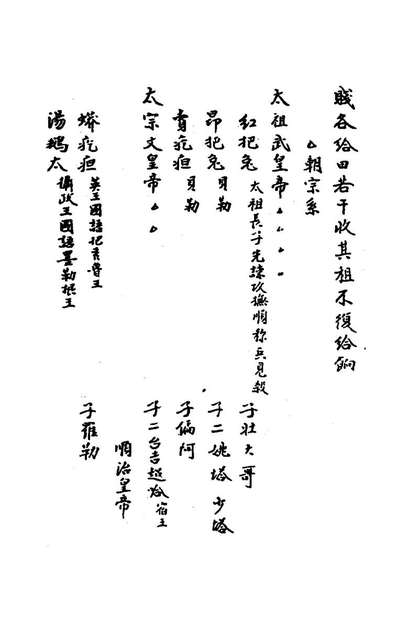 賤各給田若干收其租不復給餉
△朝宗系
太祖武皇帝△△△△
紅把兔 太祖長子先諫攻撫順稱兵見殺 子壯大哥
昂把兔 貝勒 子二姚塔 少塔
貴疙疸 貝勒 子偏阿
太宗文皇帝△△ 子二台吉超哈 宿王
順治皇帝
蟒疙疸 英王國語把 王 子羅勒
湯鵝太 攝政王國語墨勒根王